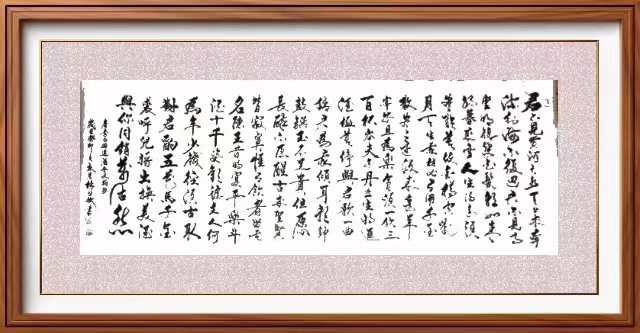 君不見黃河之水天上來奔
流到海不復回君不見高
堂明鏡悲白髮朝如青
絲暮成雪人生得意須
盡歡莫使金樽空對
月天生我材必有用千金
散盡還復來烹羊
宰牛且為樂會須一飲三
百杯岑夫子丹丘生將進
酒杯莫停與君歌一曲
請君為我傾耳聽鐘
鼓饌玉不足貴但願
長醉不願醒古來聖賢
皆寂寞惟有飲者留其
名陳王昔時宴平樂斗
酒十千恣歡謔主人何
為言少錢徑須沽取
對君酌五花馬千金
裘呼兒將出換美酒
與你同銷萬古愁
唐李白將進酒